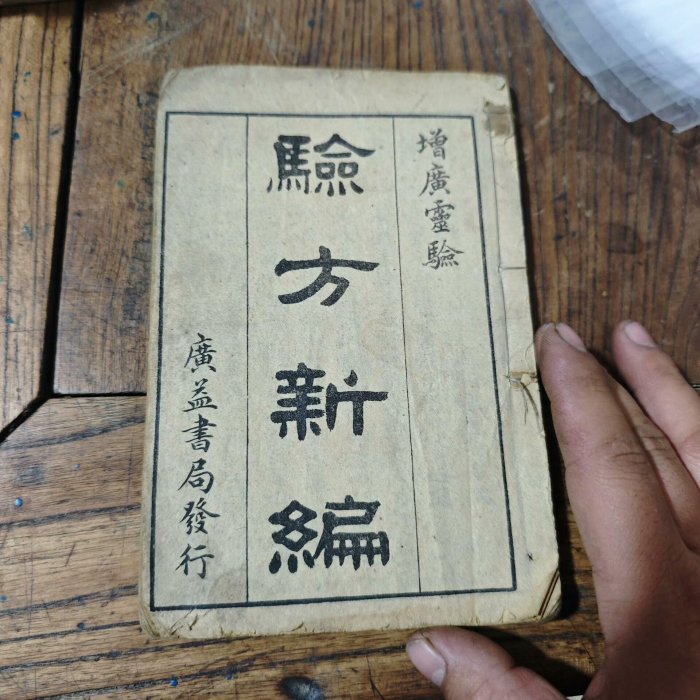 增廣靈驗
驗方新編
廣益書局發行